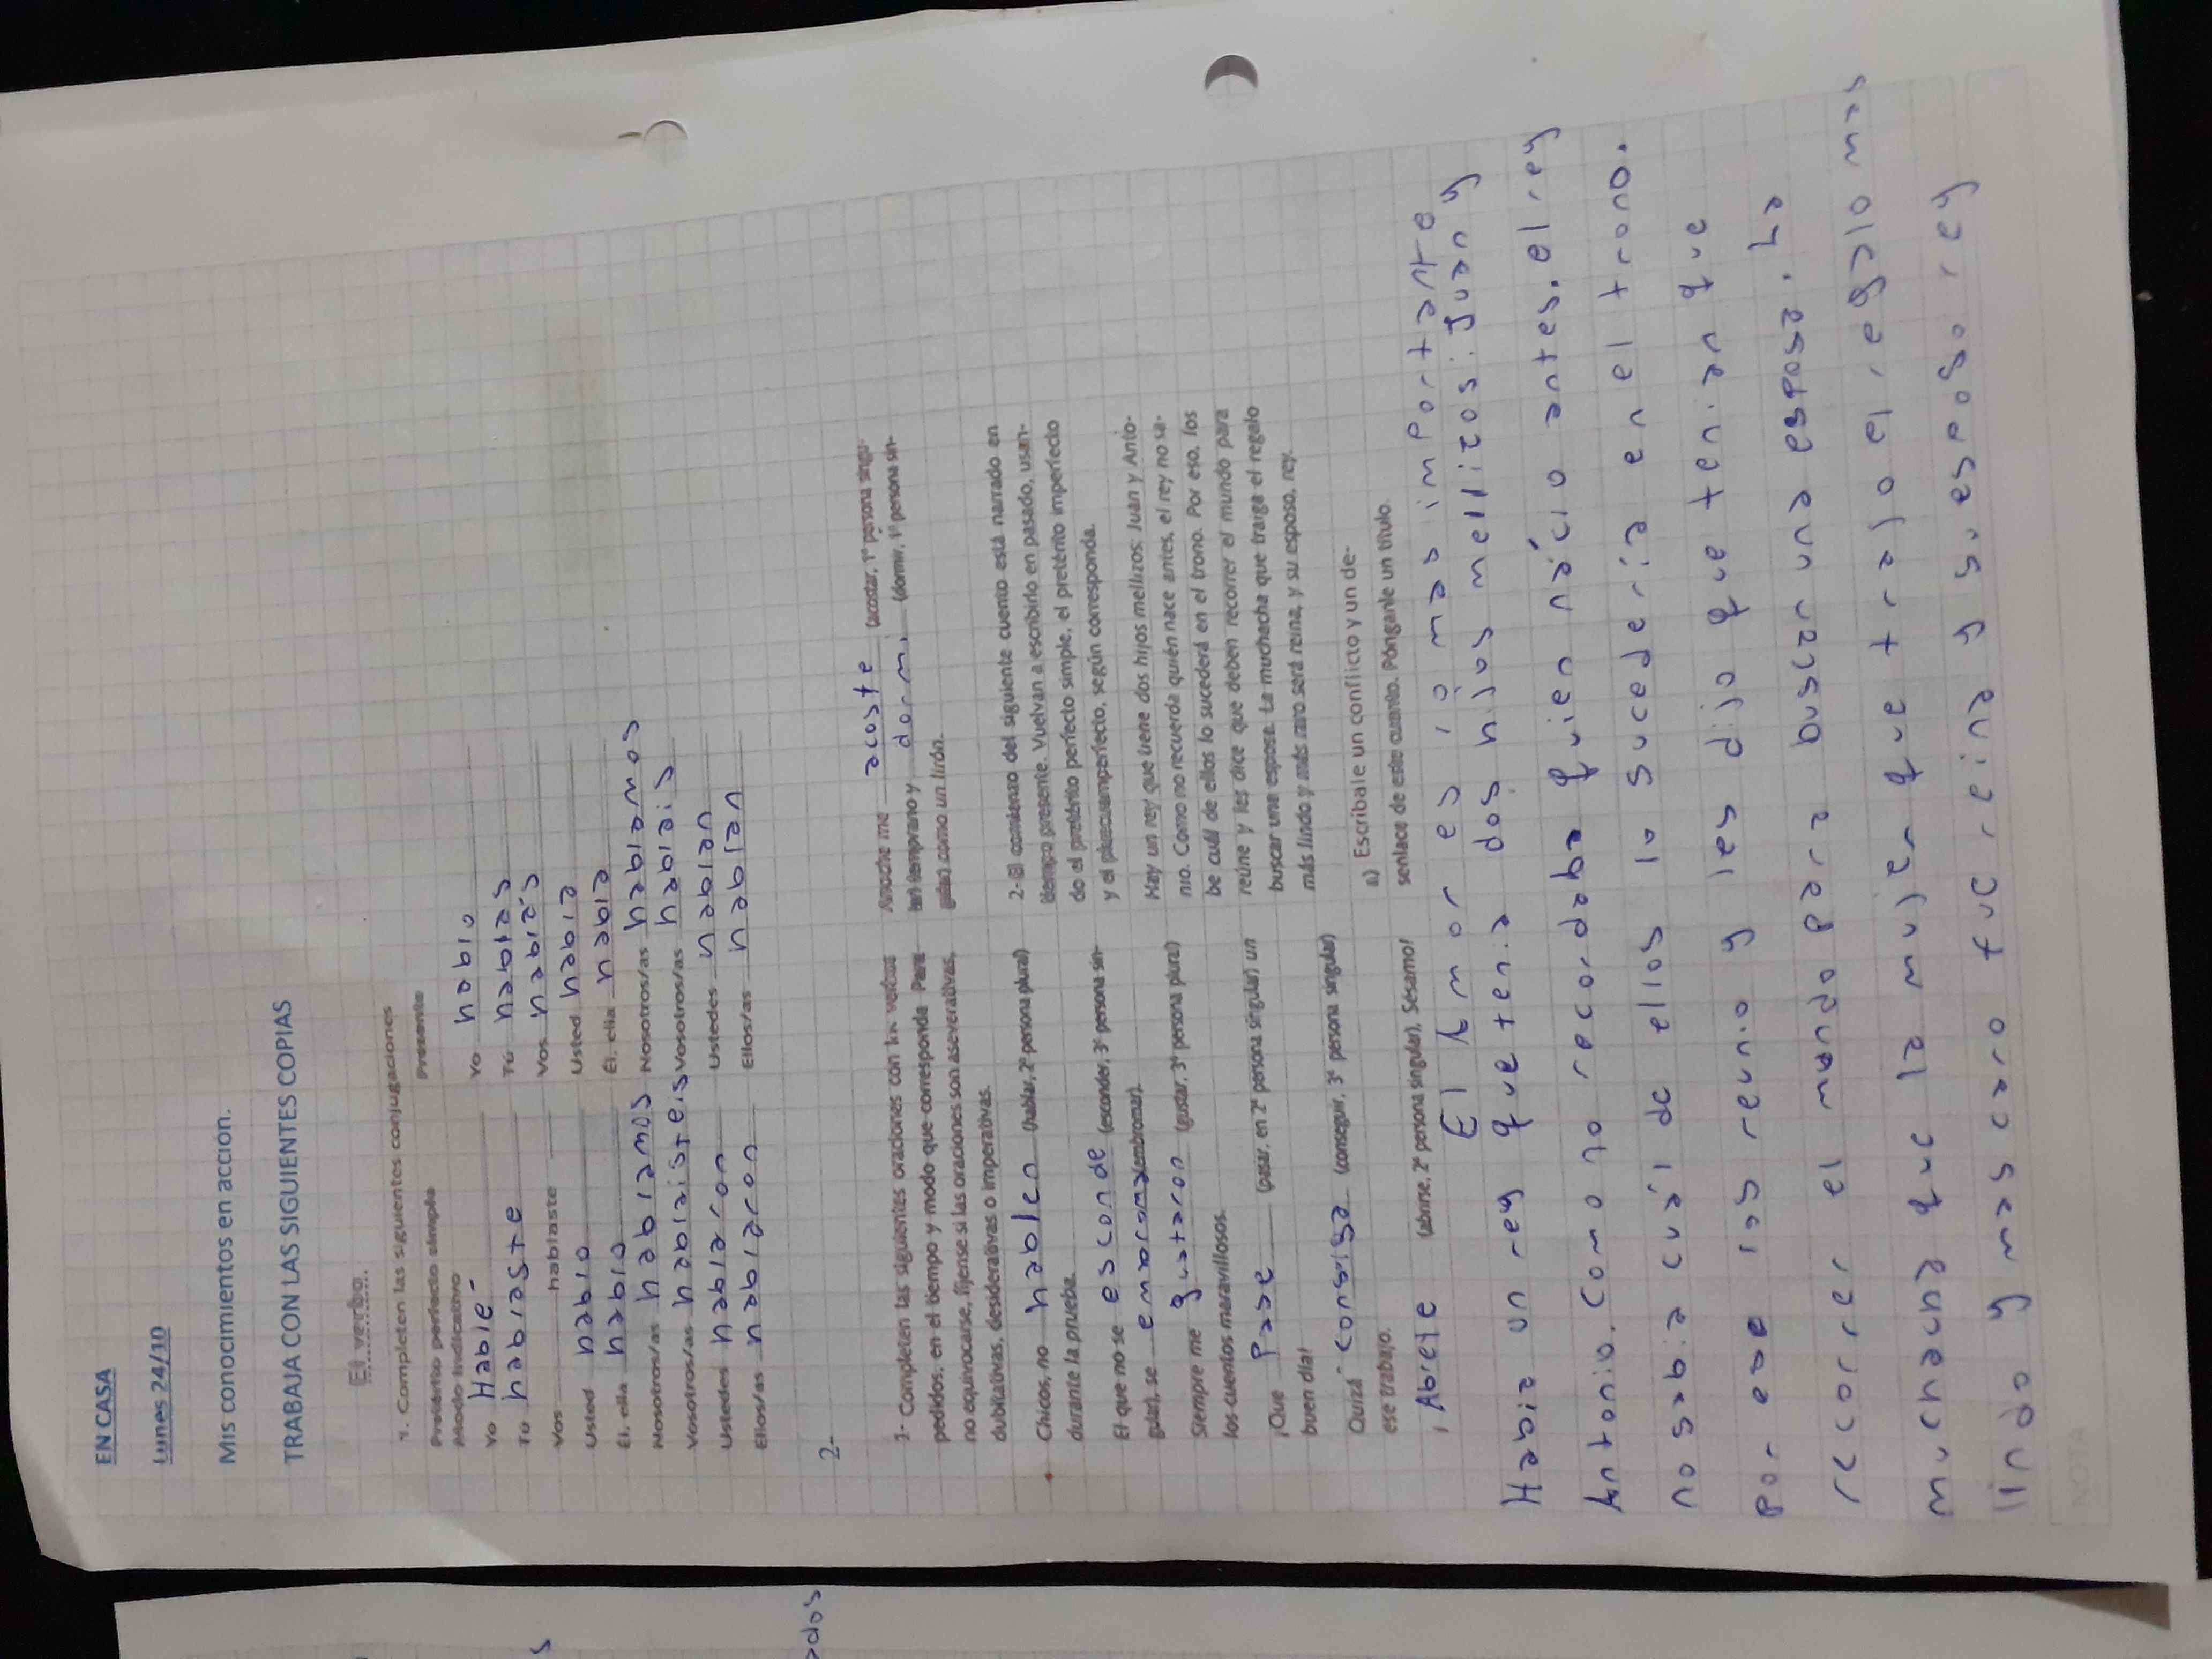 EN CASA
Lunes 24/10
Mis conocimientos en acción.
TRABAJA CON LAS SIGUIENTES COPIAS
El verbo
1. Completen las siguientes conjugaciones
Pretérito perfecto simple
Modo Indicativo
Yo Hablé
Tú hablaste
Vos hablaste
Usted hablo
Él, ella hablo
Nosotros/as hablamos
Vosotros/as hablaisteis
Ustedes hablaron
Ellos/as hablaron
Presente
Yo hablo
Tú hablas
Vos hablás
Usted habla
Él, ella habla
Nosotros/as hablamos
Vosotros/as hablais
Ustedes hablan
Ellos/as hablan
2-
1- Completen las siguientes oraciones con los verbos
pedidos, en el tiempo y modo que corresponda. Para
no equivocarse, fíjense si las oraciones son aseverativas,
dubitativas, desiderativas o imperativas.
Chicos, no hablen (hablar, 2ª persona plural)
durante la prueba.
El que no se esconde (esconder, 3ª persona sin-
gular), se embroma (embromar).
Siempre me gustaron (gustar, 3ª persona plural)
los cuentos maravillosos.
¡Que Pase (pasar, en 2ª persona singular) un
buen día!
Quizá consiga (conseguir, 3ª persona singular)
ese trabajo.
¡ Abrete (abrirse, 2ª persona singular), Sésamo!
Anoche me acoste (acostar, 1ª persona singu-
lar) temprano y dormi (dormir, 1ª persona sin-
gular) como un lirón.
2- El comienzo del siguiente cuento está narrado en
tiempo presente. Vuelvan a escribirlo en pasado, usan-
do el pretérito perfecto simple, el pretérito imperfecto
y el pluscuamperfecto, según corresponda.
Hay un rey que tiene dos hijos mellizos: Juan y Anto-
nio. Como no recuerda quién nace antes, el rey no sa-
be cuál de ellos lo sucederá en el trono. Por eso, los
reúne y les dice que deben recorrer el mundo para
buscar una esposa. La muchacha que traiga el regalo
más lindo y más raro será reina, y su esposo, rey.
a) Escríbale un conflicto y un de-
senlace de este cuento. Pónganle un título.
El Amor es lo mas importante
Habia un rey que tenia dos hijos mellizos: Juan y
Antonio. Como no recordaba quien nácio antes. el rey
no sabia cuál de ellos lo sucedería en el trono.
Por ese los reunio y les dijo que tenian que
recorrer el mundo para buscar una esposa. La
muchacha que la mujer que trajo el regalo mas
lindo y mas caro fue reina y su esposo rey
NOTA
s
ados